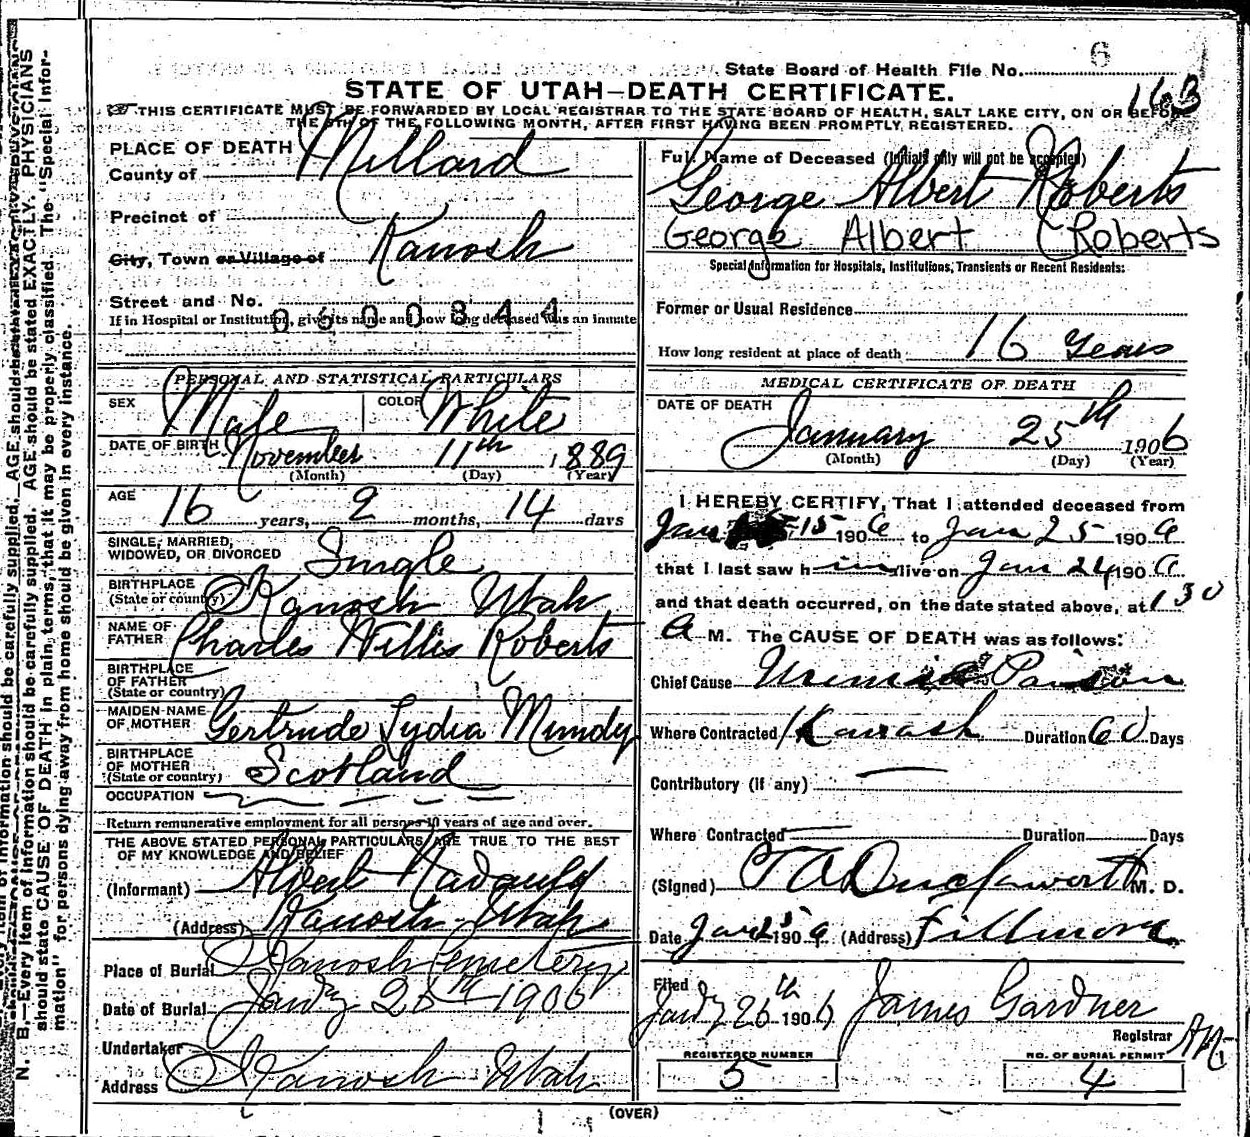 6
State Board of Health File No.
163
STATE OF UTAH—DEATH CERTIFICATE.
THIS CERTIFICATE MUST BE FORWARDED BY LOCAL REGISTRAR TO THE STATE BOARD OF HEALTH, SALT LAKE CITY, ON OR BEFORE
THE 5TH OF THE FOLLOWING MONTH, AFTER FIRST HAVING BEEN PROMPTLY REGISTERED.
PLACE OF DEATH
County of Millard
Precinct of
City, Town or Village of Kanosh
Street and No.
0600844
If in Hospital or Institution, give its name and how long deceased was an inmate
PERSONAL AND STATISTICAL PARTICULARS
SEX Male COLOR White
DATE OF BIRTH November 11th 1889
(Month) (Day) (Year)
AGE 16 years, 2 months, 14 days
SINGLE, MARRIED,
WIDOWED, OR DIVORCED Single
BIRTHPLACE
(State or country) Kanosh Utah
NAME OF
FATHER Charles Willis Roberts
BIRTHPLACE
OF FATHER
(State or country)
MAIDEN NAME
OF MOTHER Gertrude Lydia Mundy
BIRTHPLACE
OF MOTHER
(State or country) Scotland
OCCUPATION
Return remunerative employment for all persons 10 years of age and over.
THE ABOVE STATED PERSONAL PARTICULARS ARE TRUE TO THE BEST
OF MY KNOWLEDGE AND BELIEF
(Informant) Albert Nadauld
(Address) Kanosh Utah
Place of Burial Kanosh Cemetery
Date of Burial Jan'y 26th 1906
Undertaker
Address Kanosh Utah
Full Name of Deceased (Initials only will not be accepted)
George Albert Roberts
George Albert Roberts
Special Information for Hospitals, Institutions, Transients or Recent Residents:
Former or Usual Residence
How long resident at place of death 16 Years
MEDICAL CERTIFICATE OF DEATH
DATE OF DEATH
January 25th 1906
(Month) (Day) (Year)
I HEREBY CERTIFY, That I attended deceased from
Jan 15 1906 to Jan 25 1906
that I last saw him alive on Jan 24 1906
and that death occurred, on the date stated above, at 1 30
A M. The CAUSE OF DEATH was as follows:
Chief Cause Uremic Poison
Where Contracted Kanosh Duration 60 Days
Contributory (if any)
Where Contracted Duration Days
(Signed) M. D.
Date Jan 25 1906 (Address) Fillmore
Filed
Jan'y 26th 1906 James Gardner
Registrar
REGISTERED NUMBER
5
NO. OF BURIAL PERMIT
4
(OVER)
N. B.—Every item of information should be carefully supplied. AGE should be stated EXACTLY. PHYSICIANS
should state CAUSE OF DEATH in plain terms, that it may be properly classified. The "Special Infor-
mation" for persons dying away from home should be given in every instance.